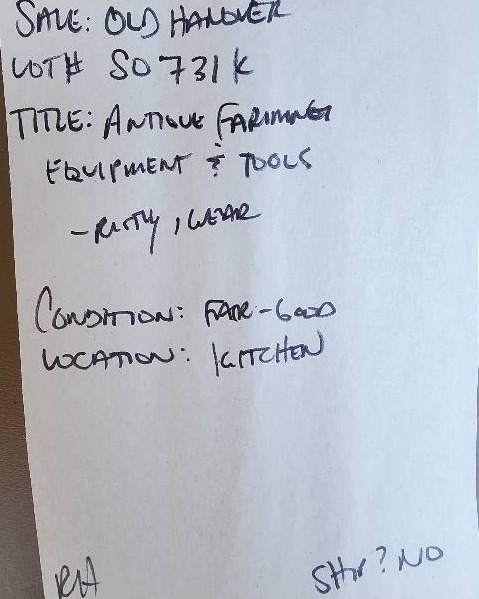 SALE: OLD HANOVER
LOT# SO731K
TITLE: ANTIQUE FARMING
EQUIPMENT & TOOLS
- RUSTY, WEAR
CONDITION: FAIR-GOOD
LOCATION: KITCHEN
SHIP? NO